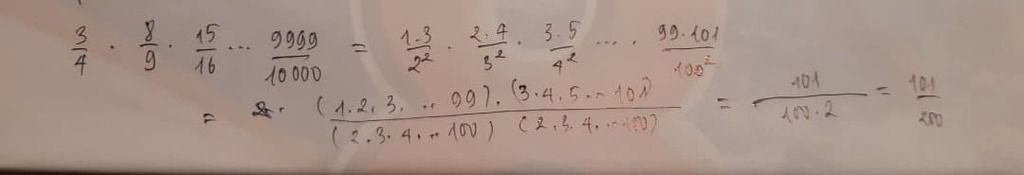 3/4 . 8/9 . 15/16 ... 9999/10000 = 1.3/2² . 2.4/3² . 3.5/4² ... . 99.101/100²
= (1.2.3...99).(3.4.5...101)/(2.3.4...100)(2.3.4...100) = 101/100.2 = 101/200